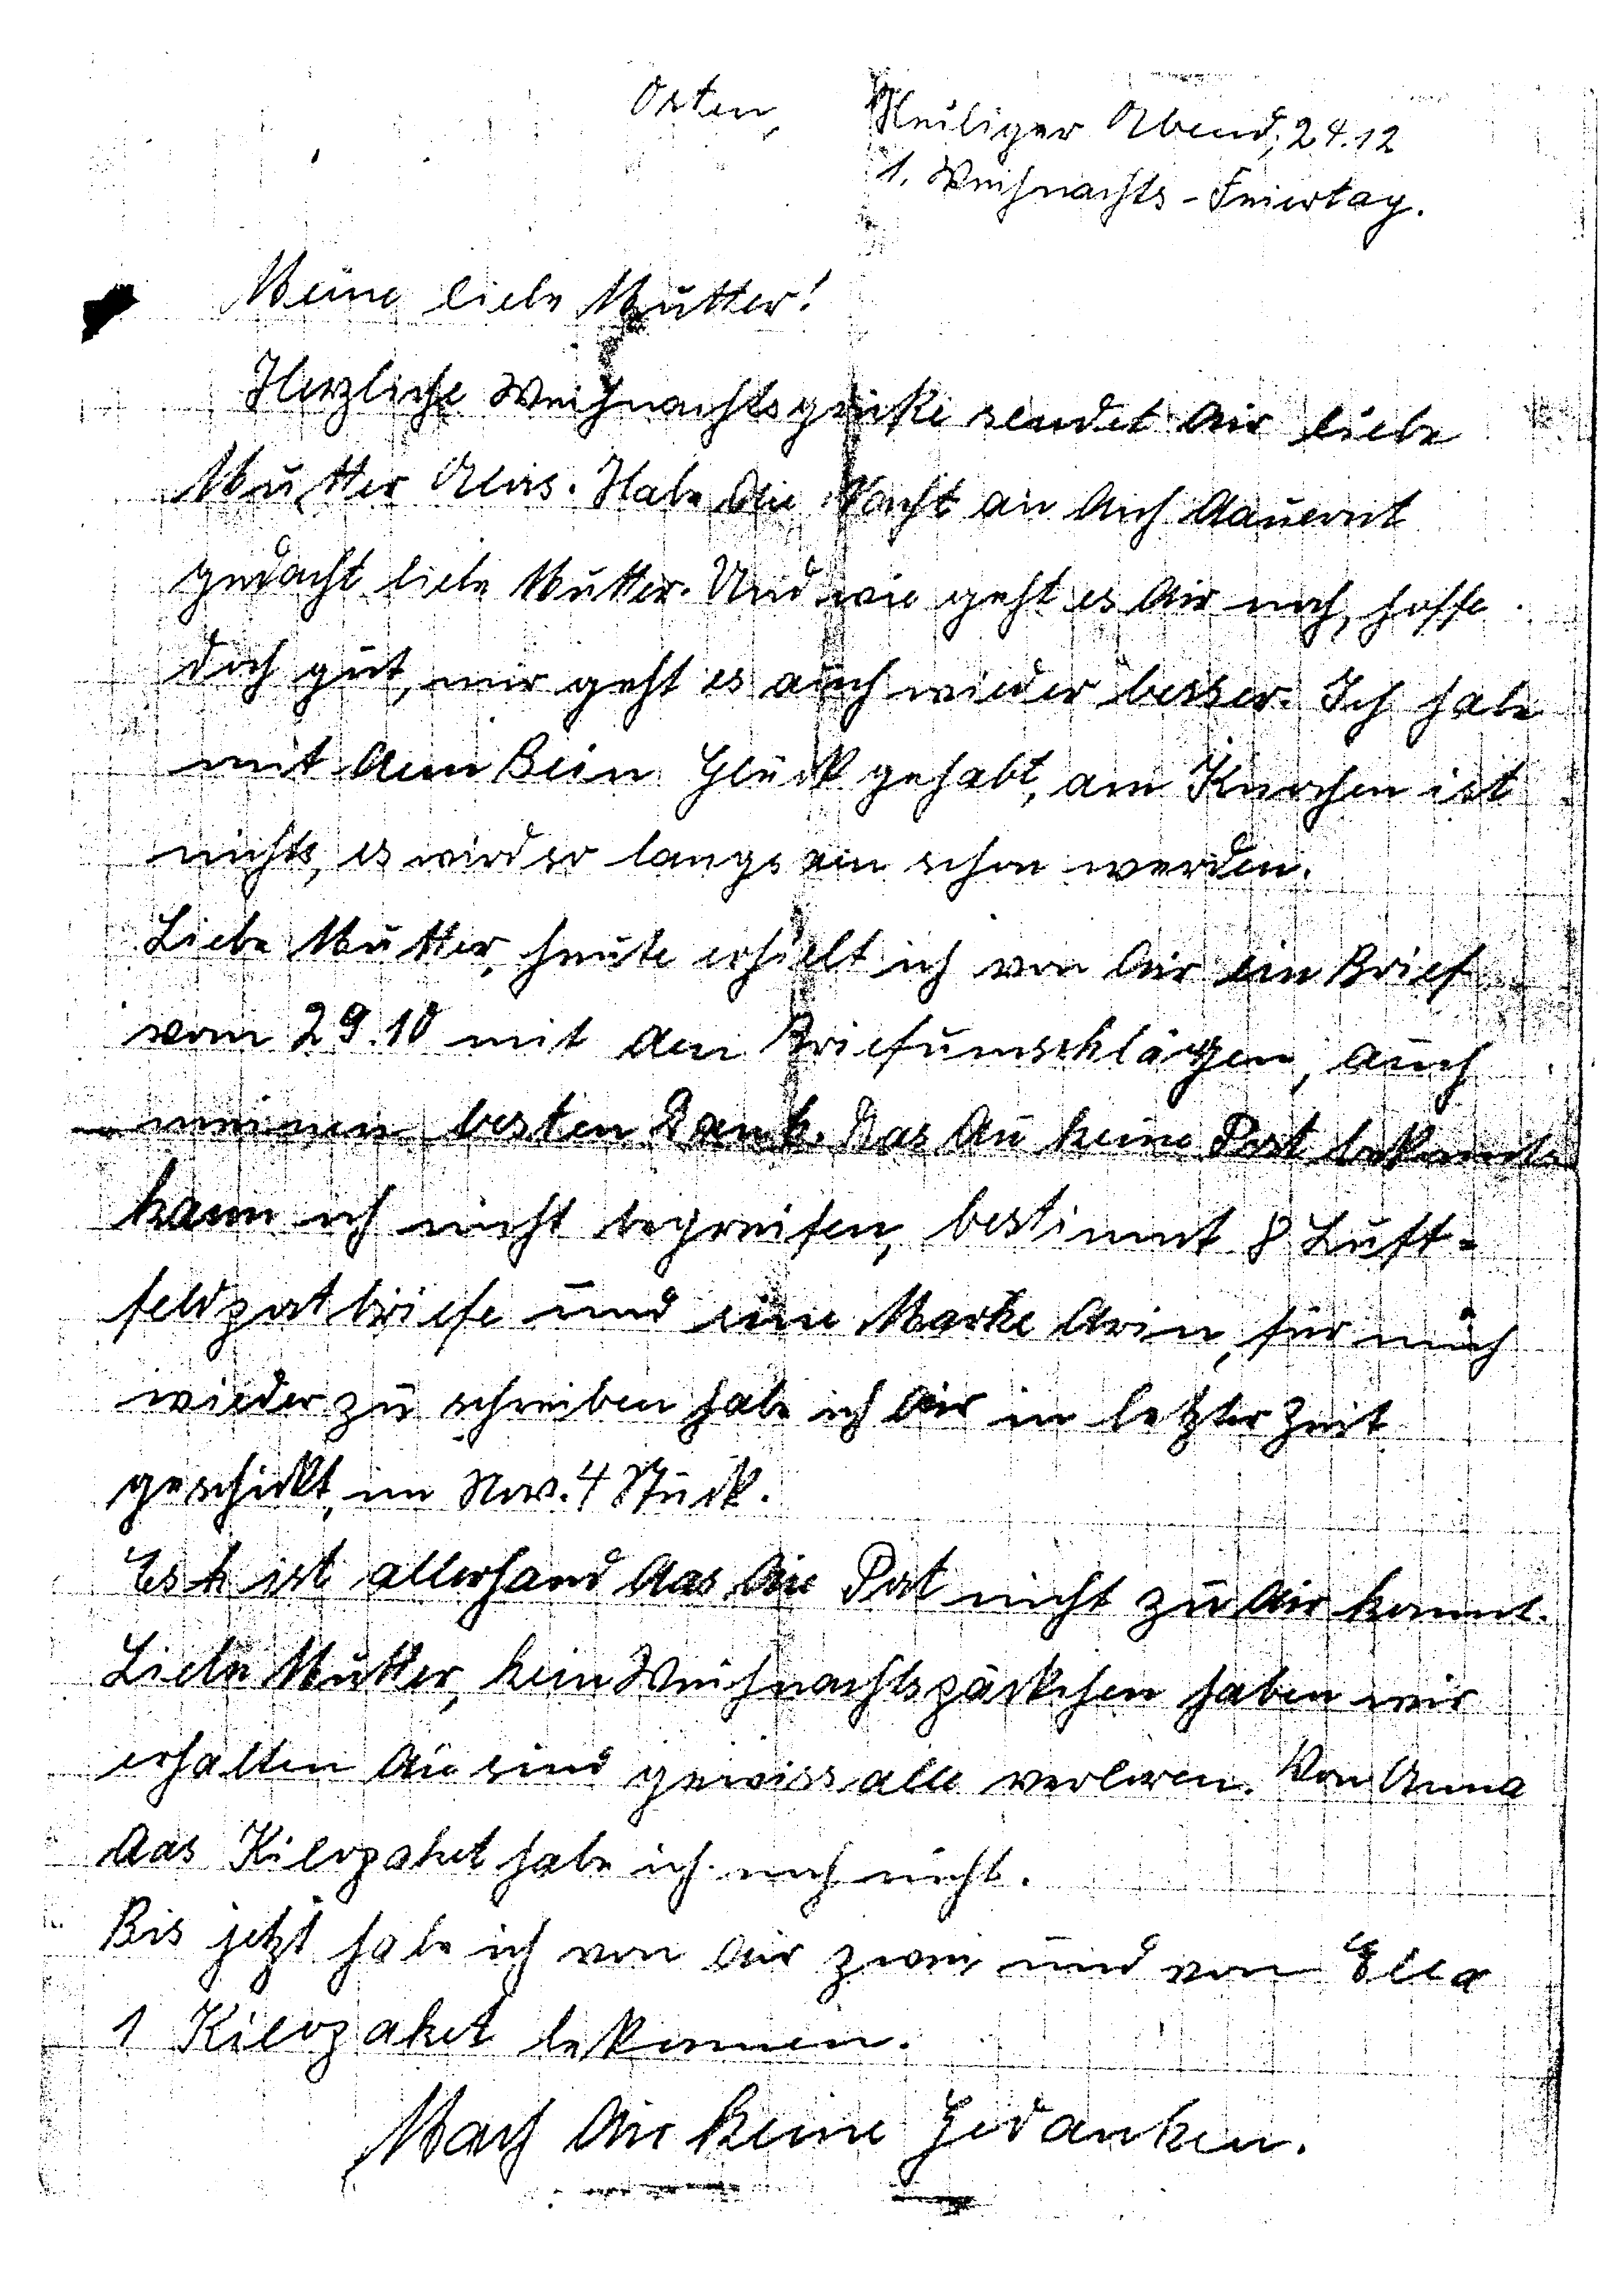 Osten, Heiliger Abend, 24.12
1. Weihnachts-Feiertag.
Meine liebe Mutter!
Herzliche Weihnachtsgrüße sendet Dir liebe
Mutter Alois. Habe die Nacht an Dich dauernt
gedacht liebe Mutter. Und wie geht es Dir noch, hoffe
doch gut, mir geht es auch wieder besser. Ich habe
mit dem Bein Glück gehabt, am Knochen ist
nichts, es wird so langsam schon werden.
Liebe Mutter, heute erhielt ich von Dir ein Brief
vom 29.10 mit den Briefumschlägen, auch
meinen besten Dank. Das Du keine Post bekommst
kann ich nicht begreifen, bestimmt 8 Luft-
feldpostbriefe und eine Marke drin, für mich
wieder zu schreiben habe ich Dir in letzter Zeit
geschickt, im Nov. 4 Stück.
Es ist allerhand das die Post nicht zu Dir kommt.
Liebe Mutter, kein Weihnachtspäckchen haben wir
erhalten die sind gewiss alle verloren. Von Anna
das Kilopaket habe ich noch nicht.
Bis jetzt habe ich von Dir zwei und von Ella
1 Kilopaket bekommen.
Mach Dir keine Gedanken.